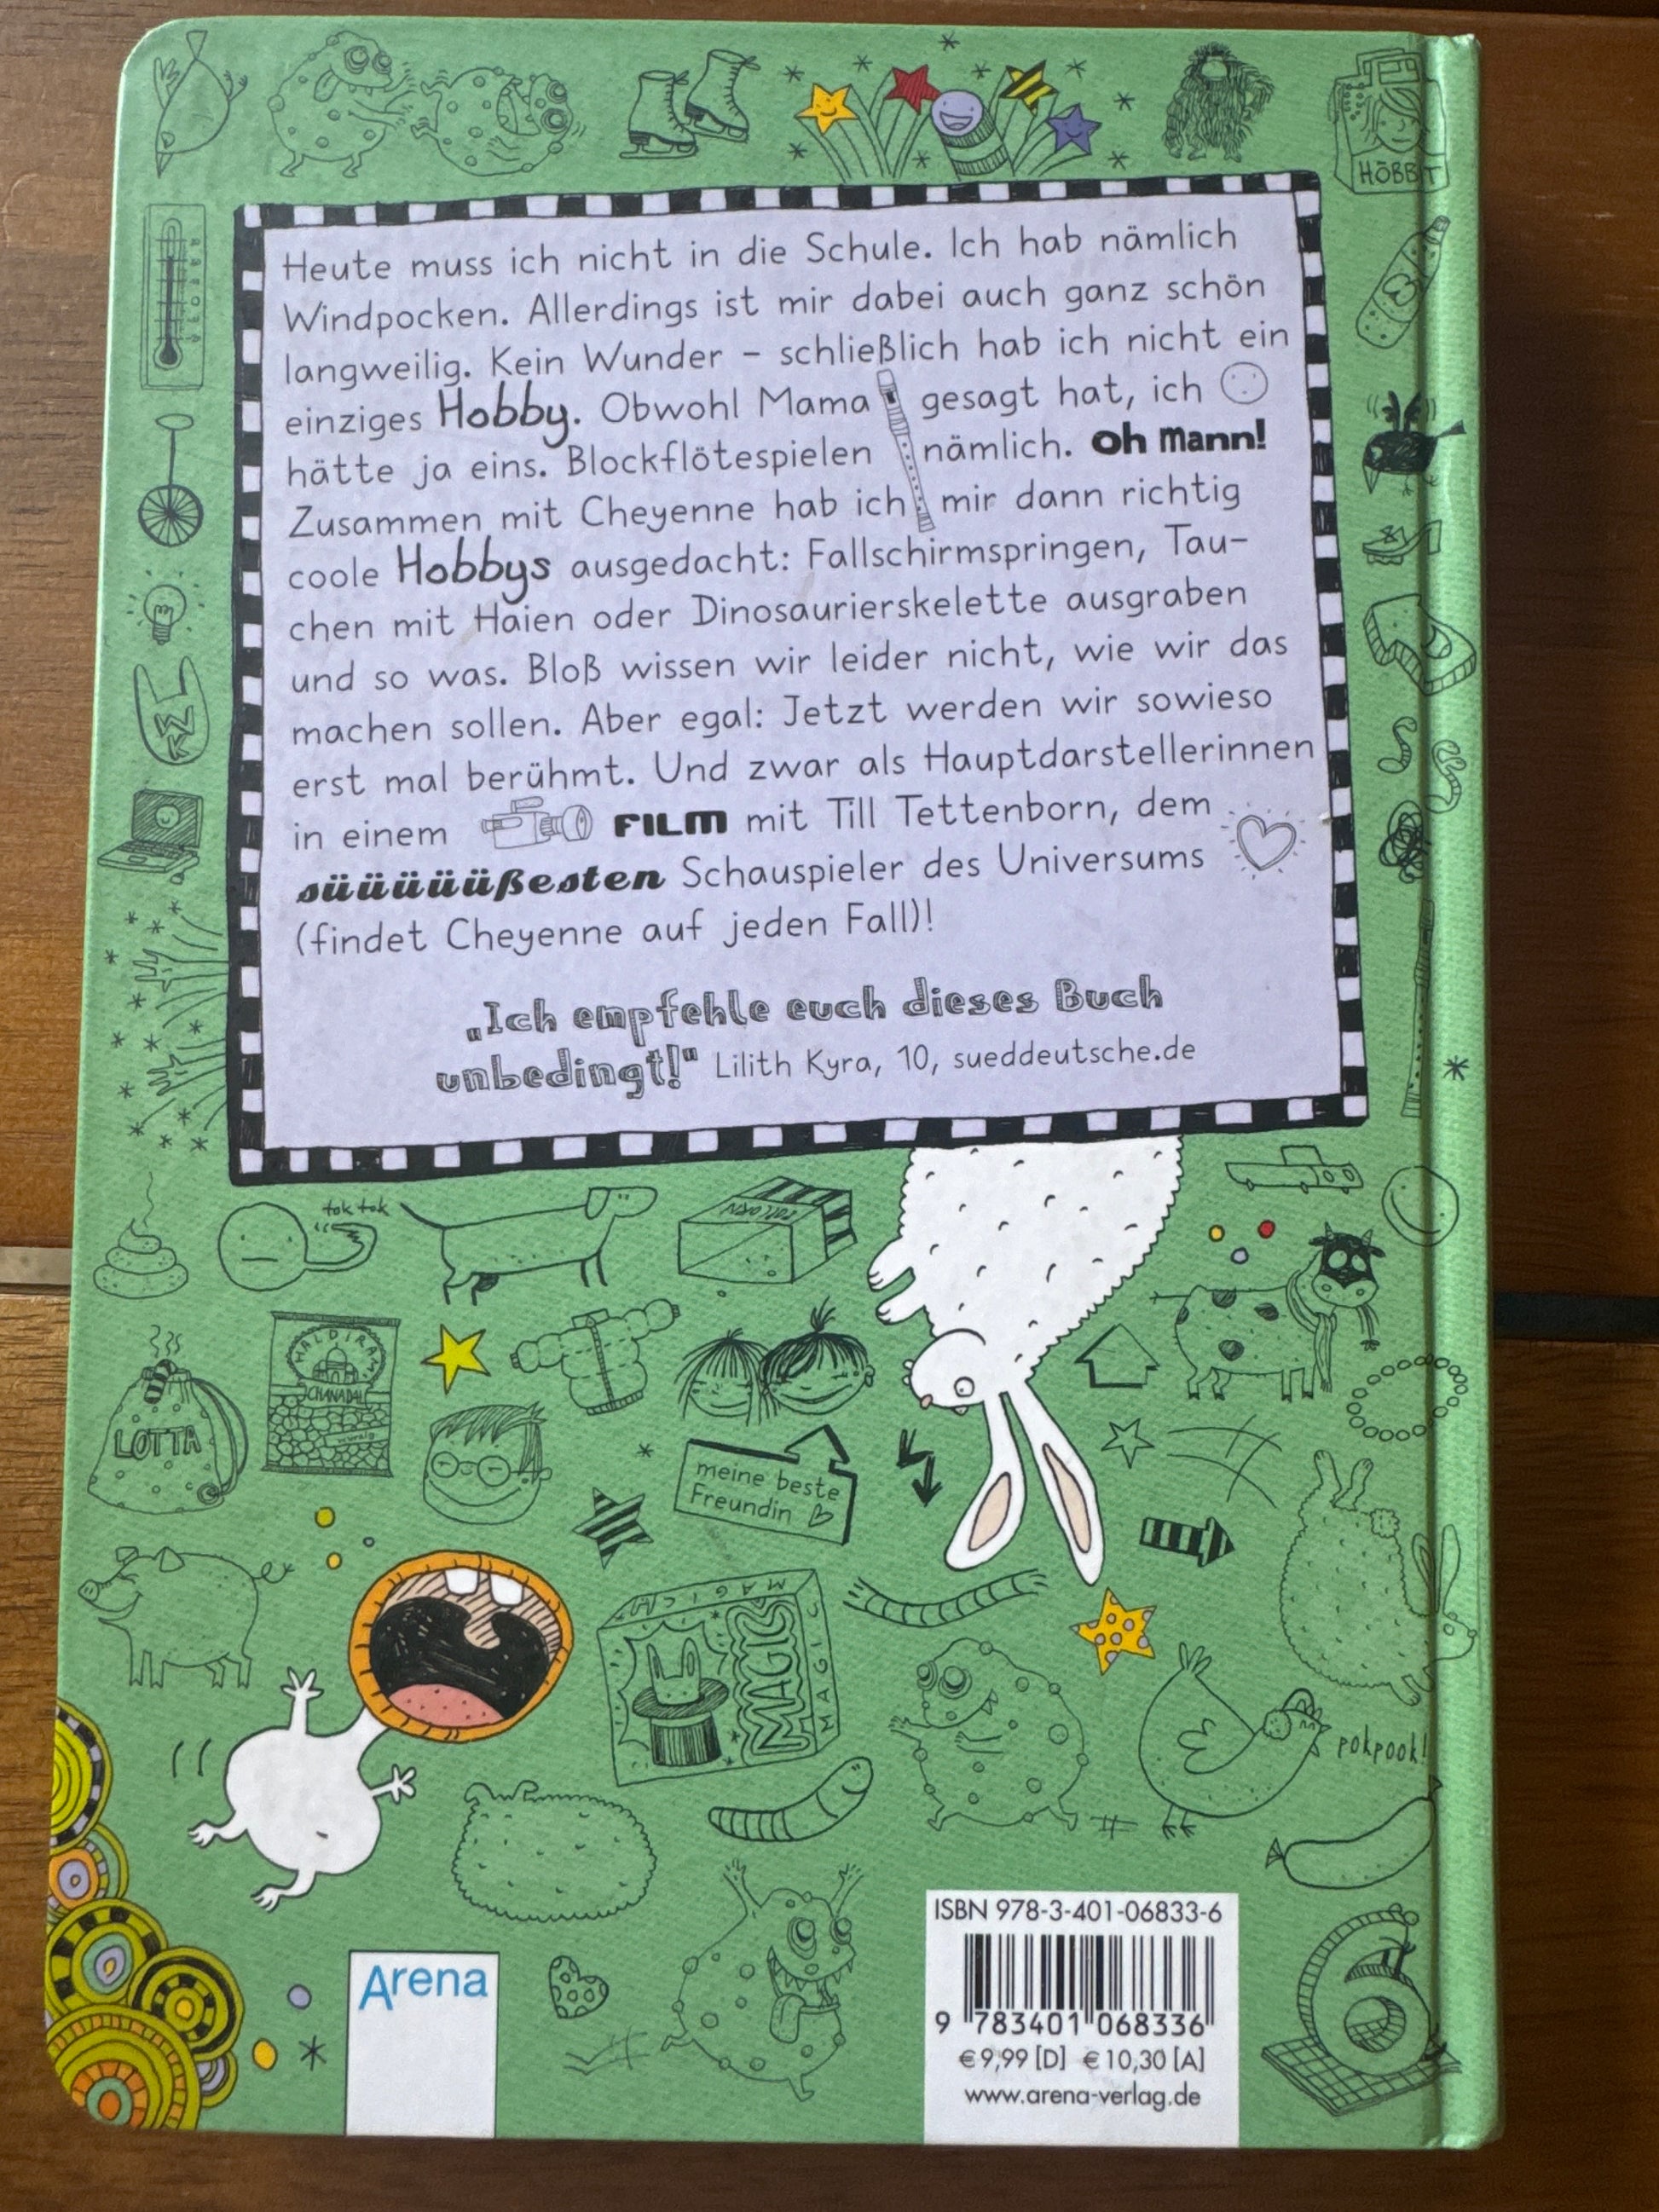 HÖBBIT
Heute muss ich nicht in die Schule. Ich hab nämlich
Windpocken. Allerdings ist mir dabei auch ganz schön
langweilig. Kein Wunder – schließlich hab ich nicht ein
einziges Hobby. Obwohl Mama gesagt hat, ich
hätte ja eins. Blockflötespielen nämlich. Oh Mann!
Zusammen mit Cheyenne hab ich mir dann richtig
coole Hobbys ausgedacht: Fallschirmspringen, Tau-
chen mit Haien oder Dinosaurierskelette ausgraben
und so was. Bloß wissen wir leider nicht, wie wir das
machen sollen. Aber egal: Jetzt werden wir sowieso
erst mal berühmt. Und zwar als Hauptdarstellerinnen
in einem FILM mit Till Tettenborn, dem
süüüüüüßesten Schauspieler des Universums
(findet Cheyenne auf jeden Fall)!
„Ich empfehle euch dieses Buch
unbedingt!" Lilith Kyra, 10, sueddeutsche.de
tok tok
POPCORN
HALDIRAM
CHANADAL
LOTTA
meine beste
Freundin
MAGIC
MAGIC
MAGIC
pokpook!
ISBN 978-3-401-06833-6
9 783401 068336
€ 9,99 [D] € 10,30 [A]
www.arena-verlag.de
Arena